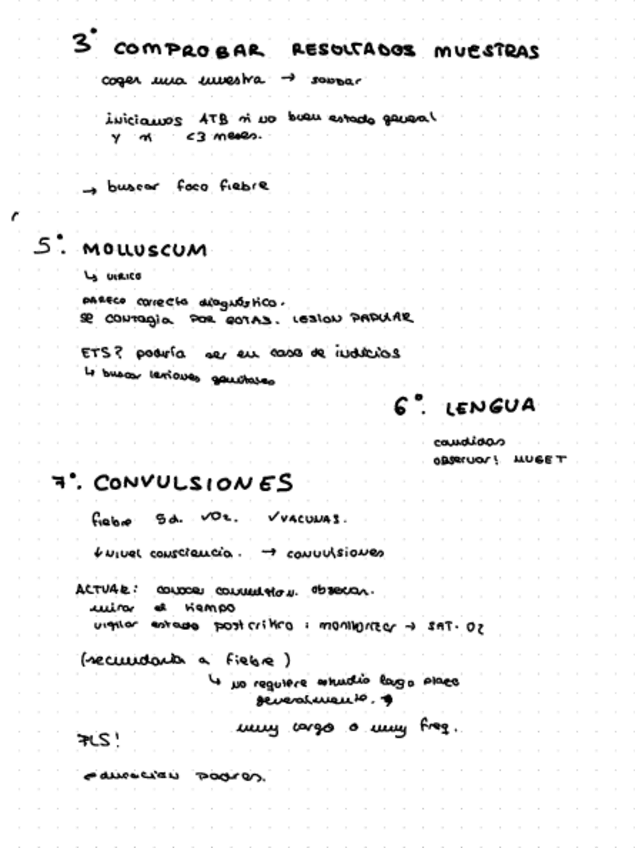 3° COMPROBAR RESULTADOS MUESTRAS
coger una muestra → sondar
iniciamos ATB si no buen estado general
y si <3 meses.
→ buscar foco fiebre
5°. MOLLUSCUM
↳ VIRICO
PARECE correcto diagnóstico.
se contagia POR GOTAS. LESION PAPULAR
ETS? podría ser en caso de indicios
↳ buscar lesiones genitales
6°. LENGUA
candidas
observar! MUGET
7°. CONVULSIONES
fiebre 5d. VACUNAS.
↓ nivel consciencia. → convulsiones
ACTUAR: conocer convulsión. observar.
mirar el tiempo
vigilar estado postcritico : monitorizar → SAT. O2
(secundaria a fiebre)
↳ no requiere estudio largo plazo
generalmente. →
muy largo o muy freq.
PLS!
educacion padres.